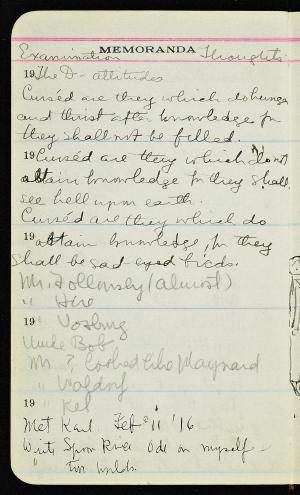 Examination MEMORANDA Thoughts
19 The D- attitudes
Curséd are they which do hunger
and thirst after knowledge for
they shall not be filled.
19 Curséd are they which don't
attain knowledge for they shall
see hell upon earth.
Curséd are they which do
19 attain knowledge, for they
shall be sad eyed birds.
Mr. Follonsby (almost)
" Hire
19 " Vosburg
Uncle Bob
Mr ? looked like Maynard
" Waldorf
19 " Kel
Met Karl Feb 11 '16
Write Spoon River Ode on myself -
" " Two worlds.